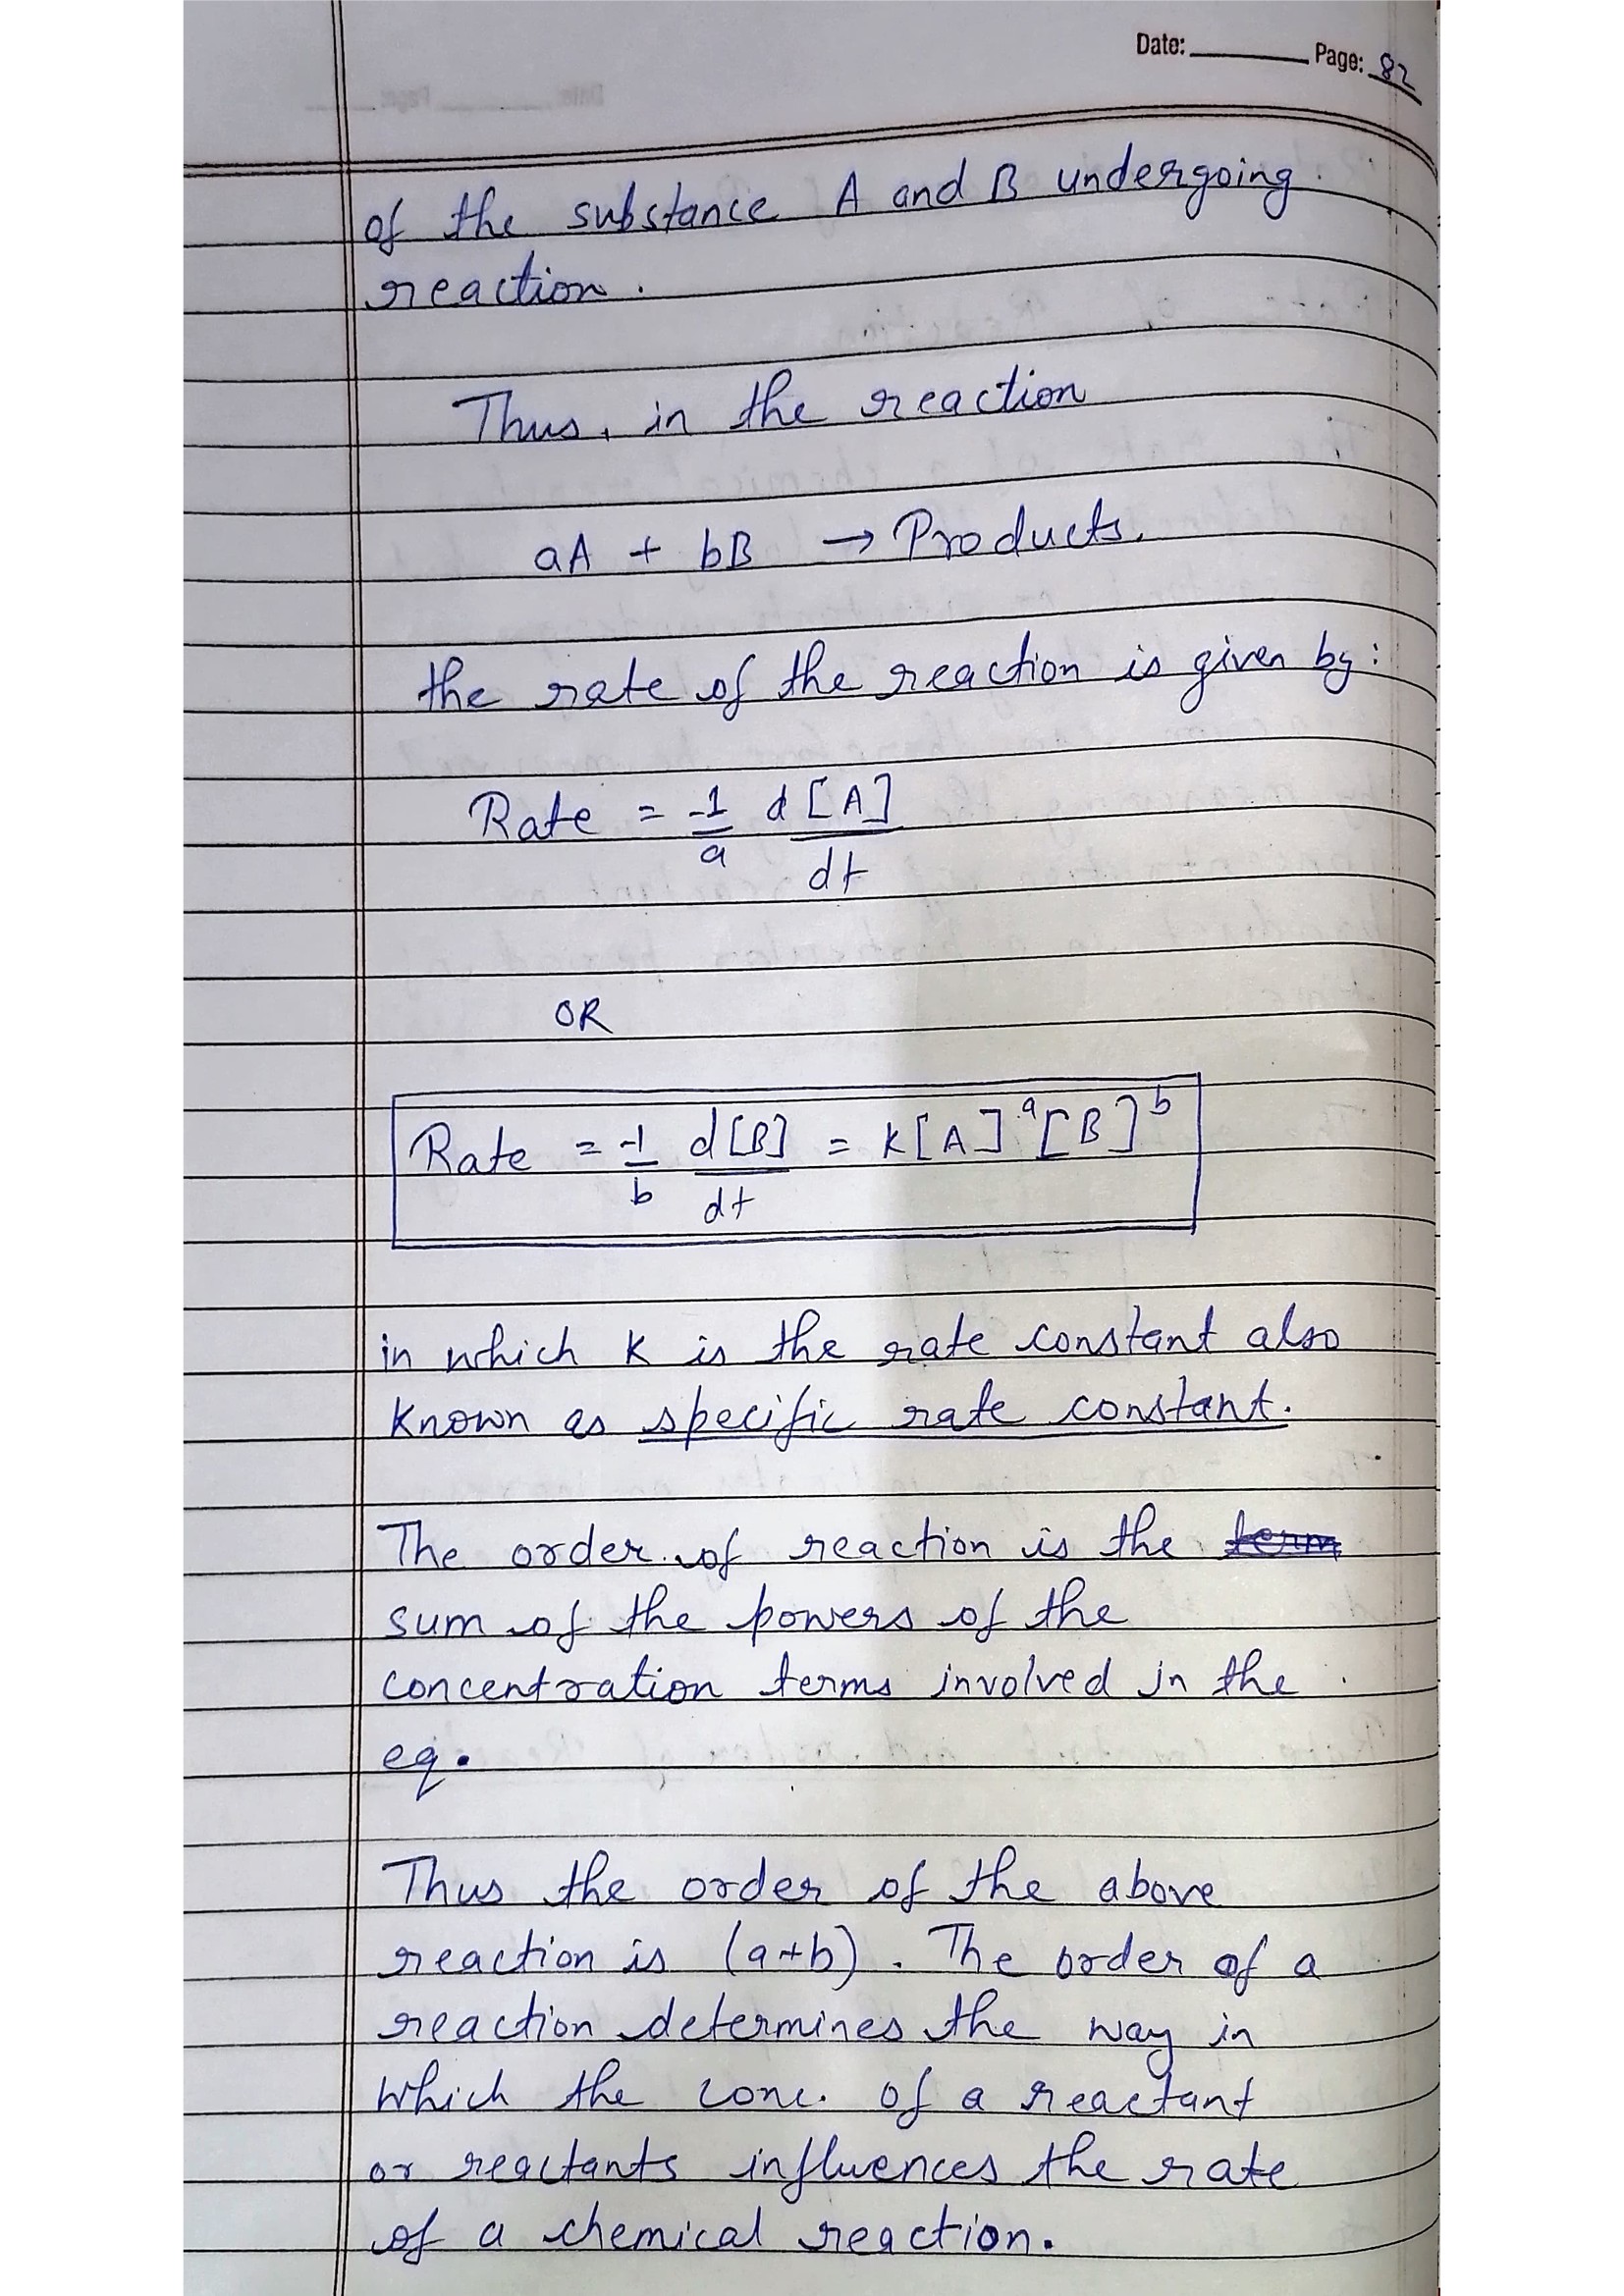 Date: Page: 82
of the substance A and B undergoing
reaction.
Thus, in the reaction
aA + bB → Products.
the rate of the reaction is given by:
Rate = -1/a d[A]/dt
OR
Rate = -1/b d[B]/dt = K[A]^a [B]^b
in which K is the rate constant also
known as specific rate constant.
The order of reaction is the term
sum of the powers of the
concentration terms involved in the
eq.
Thus the order of the above
reaction is (a+b). The order of a
reaction determines the way in
which the conc. of a reactant
or reactants influences the rate
of a chemical reaction.